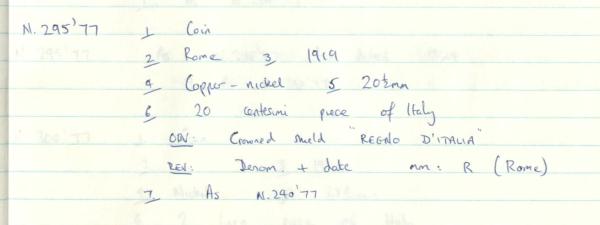 N. 295'77 1 Coin
2 Rome 3 1919
4 Copper-nickel 5 20½mm
6 20 centesimi piece of Italy
OBV: Crowned shield "REGNO D'ITALIA"
REV: Denom. + date mm: R (Rome)
7 As N.290'77